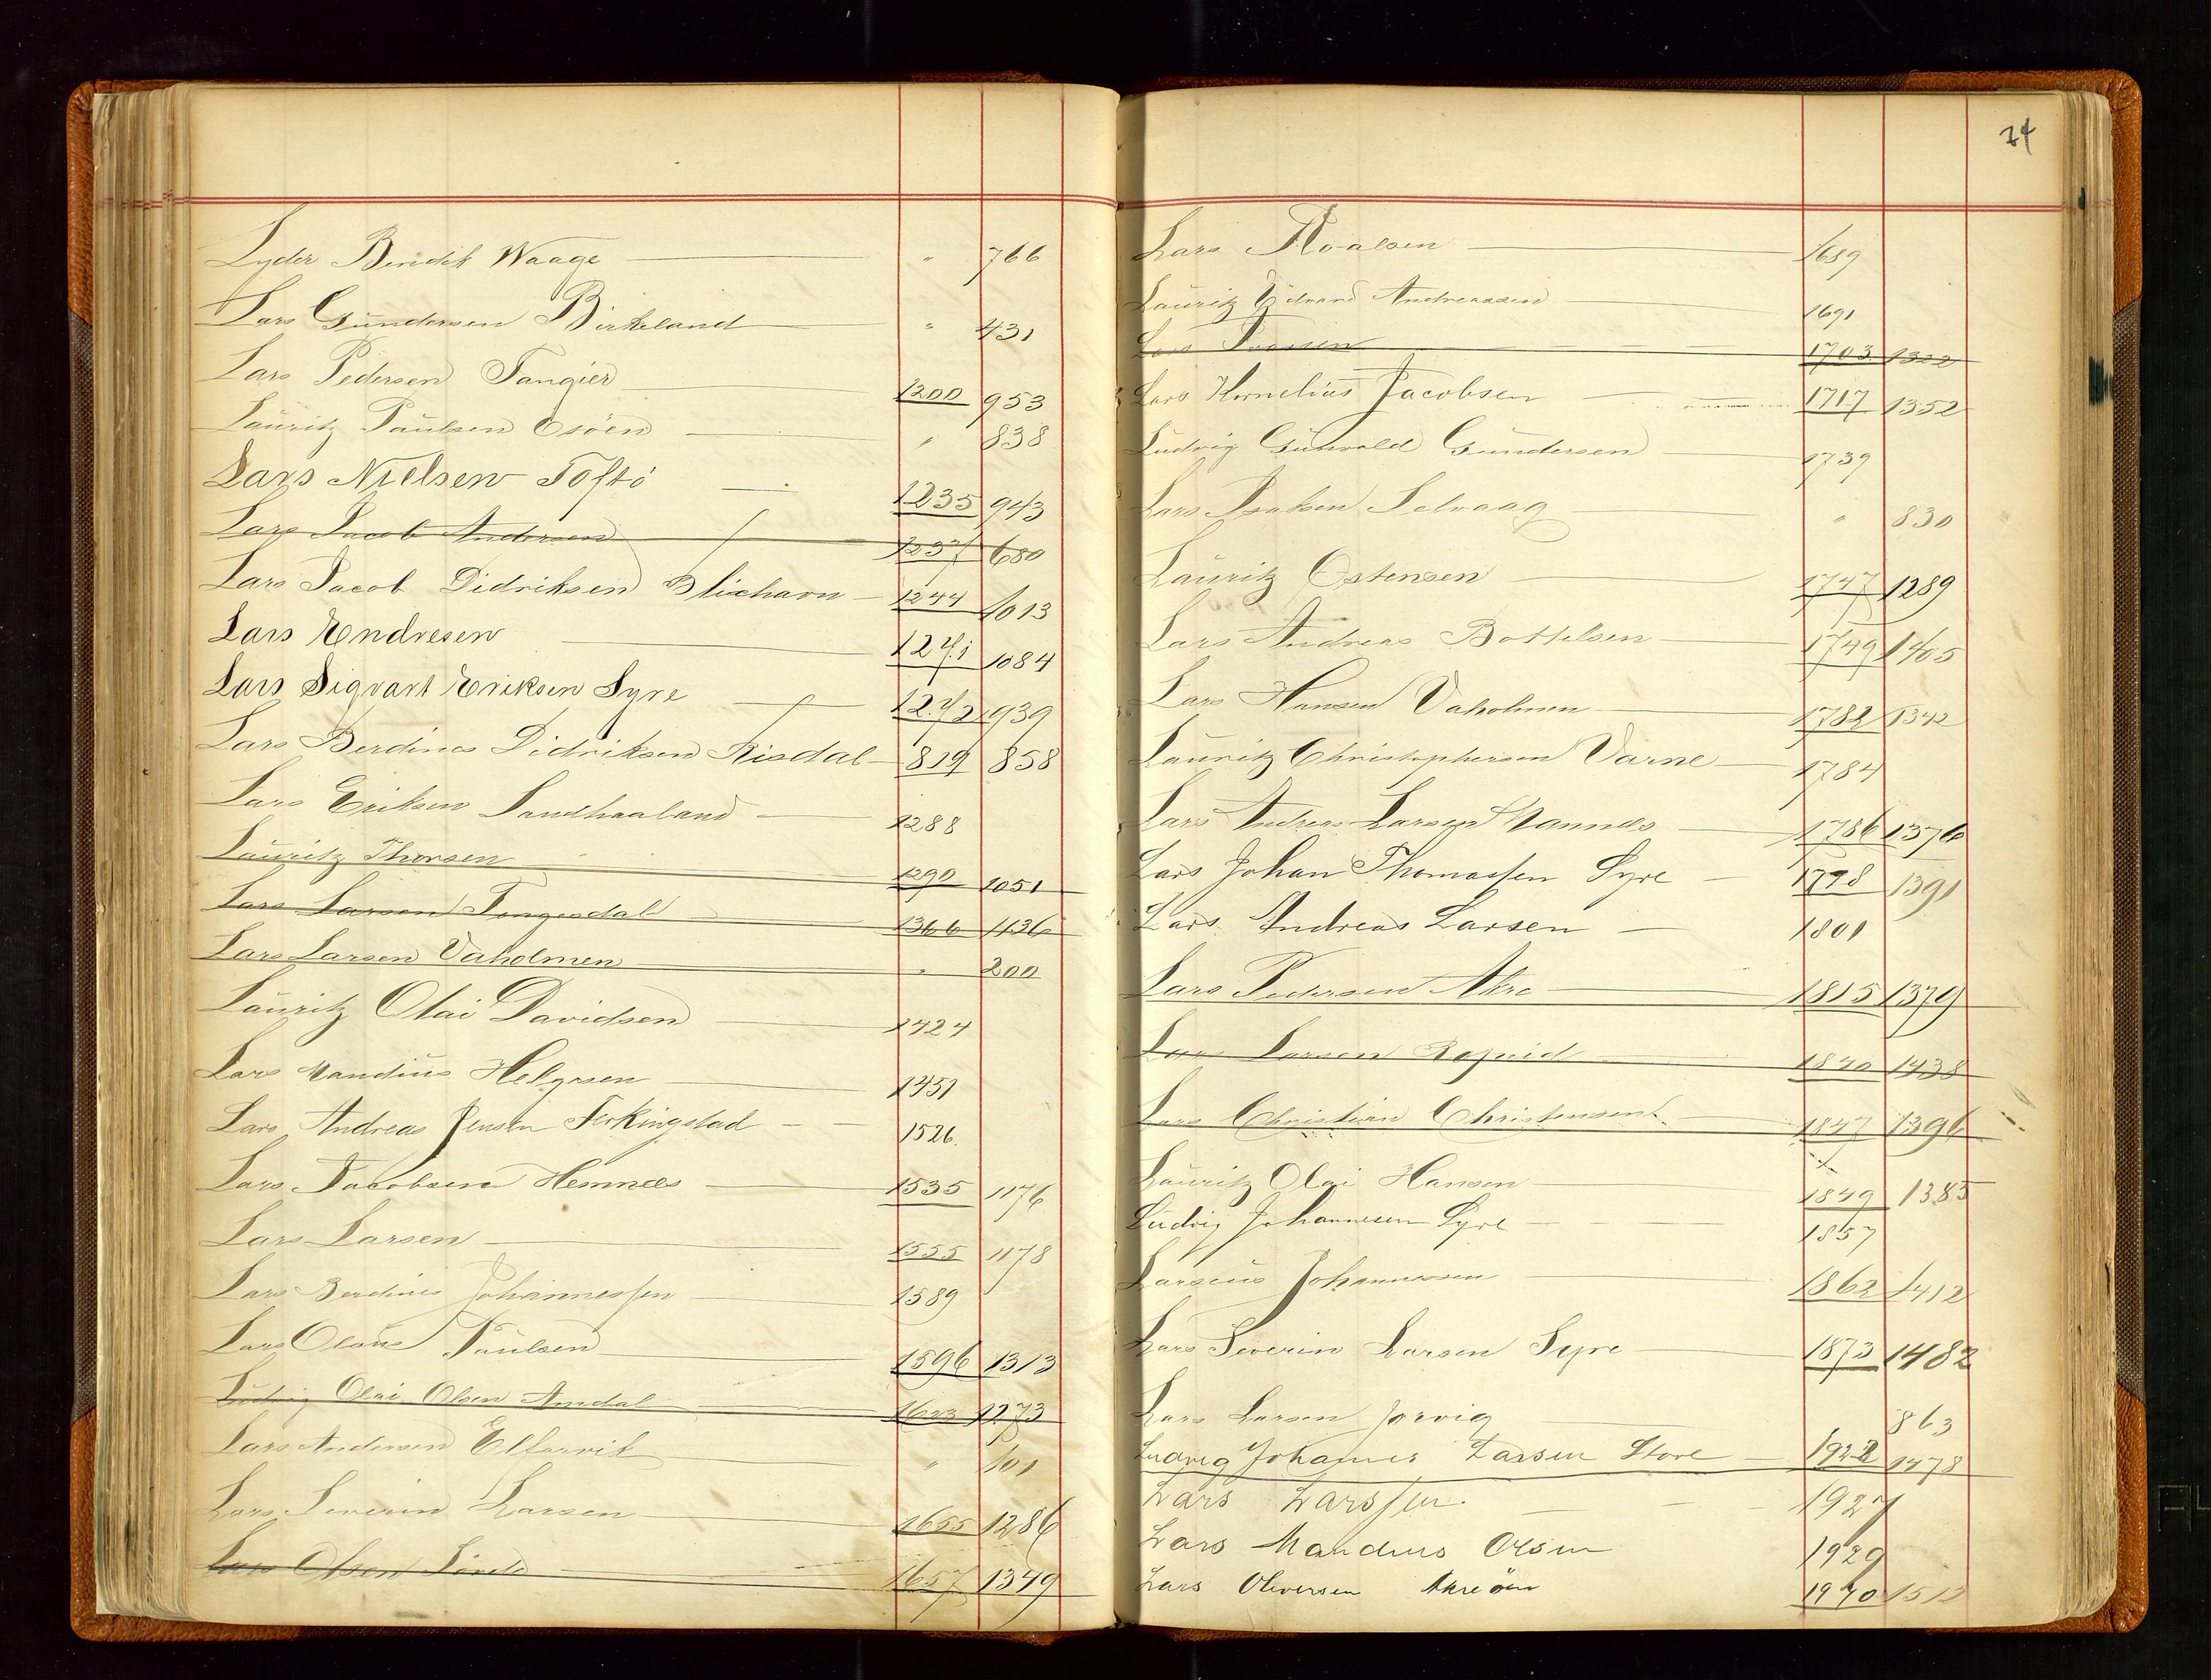 Lyder Bendik Waage " 766
Lars Gundersen Birkeland " 431
Lars Pedersen Tangier 1200 953
Lauritz Paulsen Osöen " 838
Lars Nielsen Toftö 1235 943
Lars Jacob Andersen 1237 680
Lars Jacob Didriksen Blixhavn 1244 1013
Lars Endresen 1271 1084
Lars Sigvart Eriksen Syre 1272 939
Lars Berdines Didriksen Risdal 819 858
Lars Eriksen Sandhaaland 1288
Lauritz Thorsen 1290 1051
Lars Larsen Tengesdal 1366 1136
Lars Larsen Vaholmen " 200
Lauritz Olai Davidsen 1424
Lars Mandius Helgesen 1451
Lars Andreas Jensen Ferkingstad 1526.
Lars Jacobsen Hemnes 1535 1176
Lars Larsen 1555 1178
Lars Berdines Johannessen 1589
Lars Olaus Paulsen 1596 1313
Ludvig Olai Olsen Amdal 1623 1273
Lars Andersen Elfarvik " 101
Lars Severin Larsen 1655 1286
Lars Olsen 1657 1349
24
Lars Roalsen 1689
Lauritz Edvard Andreassen 1691
Lars Ivarsen 1703 1322
Lars Kornelius Jacobsen 1717 1352
Ludvig Gunvald Gundersen 1739
Lars Isaksen Selvaag " 830
Lauritz Ostensen 1747 1289
Lars Andreas Bottelsen 1749 1405
Lars Hansen Vaholmen 1782 1342
Lauritz Christophersen Varne 1784
Lars Andreas Larsen Mannes 1786 1376
Lars Johan Thomassen Syre 1798 1391
Lars Andreas Larsen 1801
Lars Pedersen Akre 1815 1379
Lars Larsen 1840 1438
Lars Christian Christensen 1847 1396
Lauritz Olai Hansen 1849 1385
Ludvig Johannesen Syre 1857
Larseus Johannessen 1862 1412
Lars Severin Larsen Syre 1873 1482
Lars Larsen Jorvig 863
Ludvig Johannes Larsen Store 1922 1478
Lars Larssen. 1927
Lars Mandius Olsen 1929
Lars Oliversen Akreöen 1970 1512